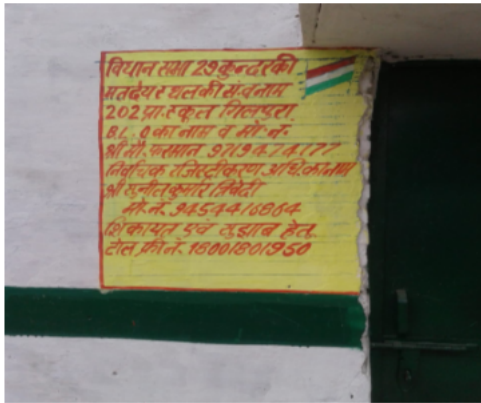 विधान सभा 29 कुन्दरकी
मतदेय स्थल की सं. व नाम
202 प्रा. स्कूल गिलपुरा
B.L.O का नाम व मो. नं.
श्री मो. फरमान 9719414177
निर्वाचक रजिस्ट्रीकरण अधि. का नाम
श्री सुनील कुमार त्रिवेदी
मो. नं. 9454416864
शिकायत एवं सुझाव हेतु
टोल फ्री नं. 18001801950